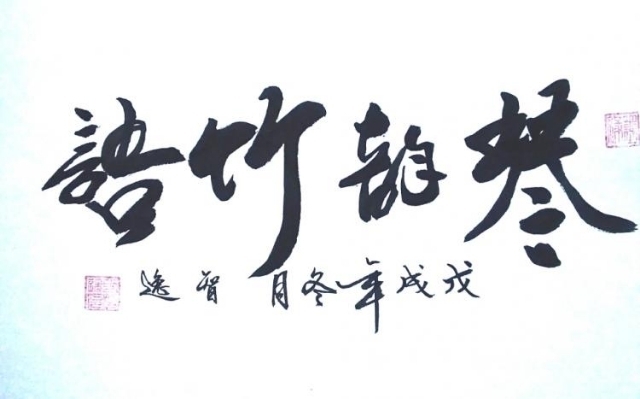 琴韵竹语
戊戌年冬月智逸